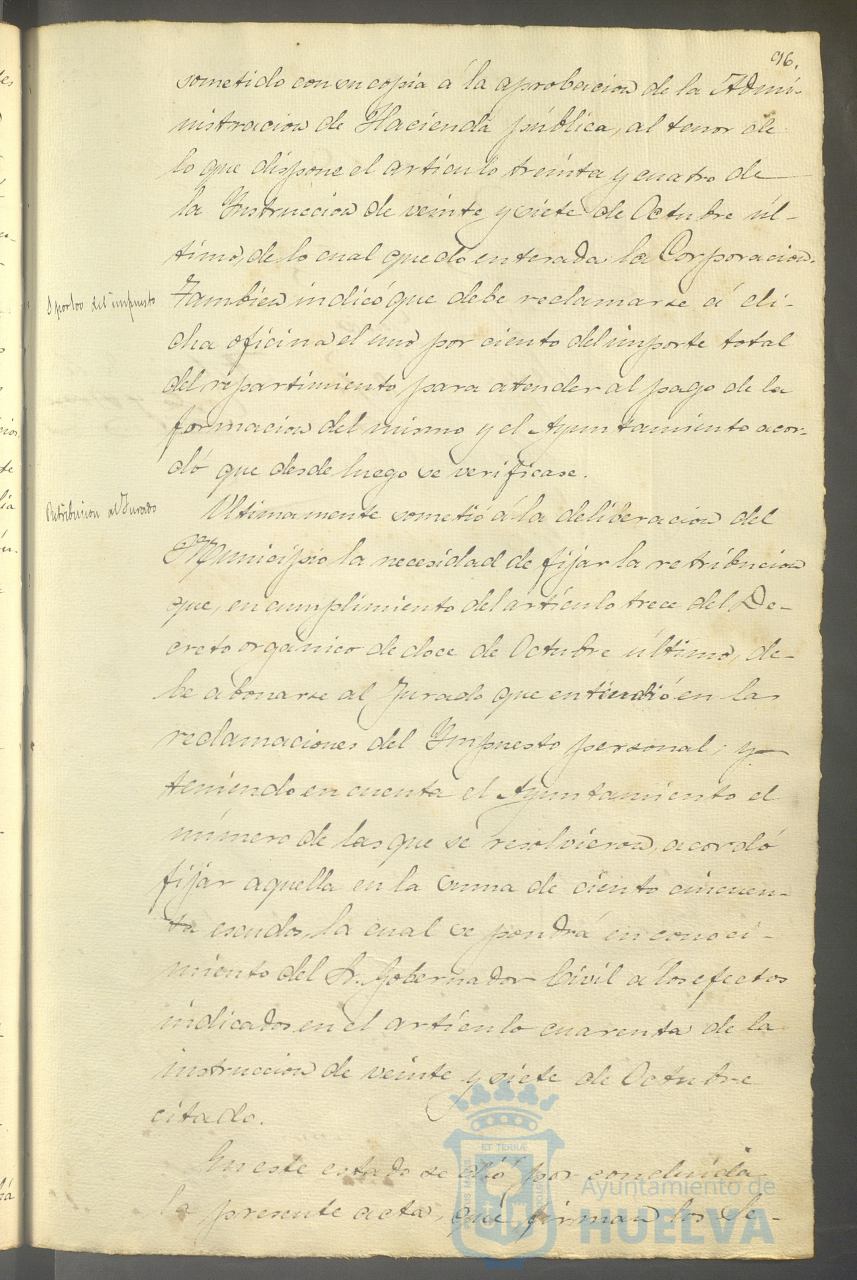 96.
sometido con su copia á la aprobacion de la Admi-
nistracion de Hacienda pública, al tenor de
lo que dispone el artículo treinta y cuatro de
la Instruccion de veinte y siete de Octubre úl-
timo, de lo cual quedo enterada la Corporacion.
del impuesto
Tambien indicó que debe reclamarse á di-
cha oficina el uno por ciento del importe total
del repartimiento para atender al pago de la
formacion del mismo y el Ayuntamiento acor-
dó que desde luego se verificase.
Retribucion al Jurado
Ultimamente sometió á la deliberacion del
Municipio la necesidad de fijar la retribucion
que, en cumplimiento del artículo trece del De-
creto orgánico de doce de Octubre último, de-
be abonarse al Jurado que entiendió en las
reclamaciones del Impuesto personal; y
teniendo en cuenta el Ayuntamiento el
número de las que se resolvieron, acordó
fijar aquella en la suma de ciento cincuen-
ta escudos, la cual se pondrá en conoci-
miento del Sr. Gobernador Civil a los efectos
indicados en el artículo cuarenta de la
instruccion de veinte y siete de Octubre
citado.
En este estado se dió por concluida
la presente acta, que firman los Se-
ET TERRÆ
Ayuntamiento de
HUELVA